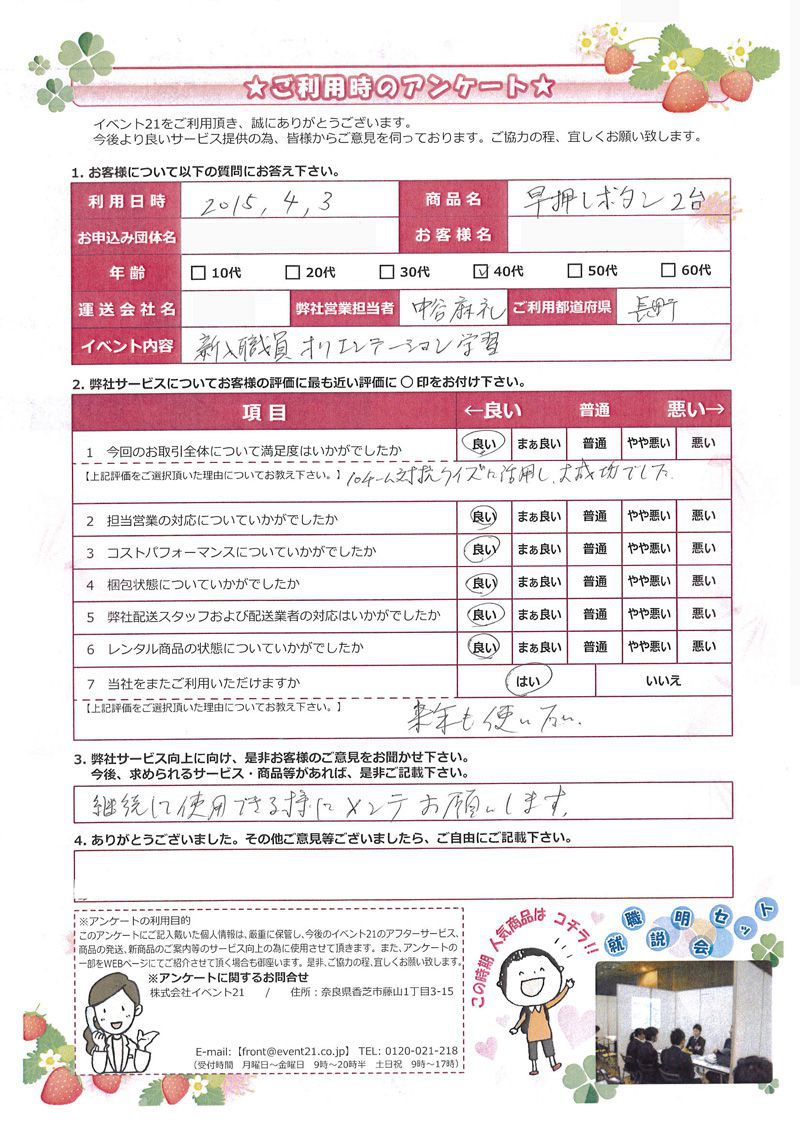 ★ご利用時のアンケート★
イベント21をご利用頂き、誠にありがとうございます。
今後より良いサービス提供の為、皆様からご意見を伺っております。ご協力の程、宜しくお願い致します。
1. お客様について以下の質問にお答え下さい。
利用日時 2015, 4, 3 商品名 早押しボタン 2台
お申込み団体名 お客様名
年齢 10代 20代 30代 ☑40代 50代 60代
運送会社名 弊社営業担当者 中谷麻礼 ご利用都道府県 長野
イベント内容 新入職員オリエンテーション学習
2. 弊社サービスについてお客様の評価に最も近い評価に 〇 印をお付け下さい。
項目 ←良い 普通 悪い→
1 今回のお取引全体について満足度はいかがでしたか 良い まぁ良い 普通 やや悪い 悪い
【上記評価をご選択頂いた理由についてお教え下さい。】 10チーム対抗クイズに活用し、大成功でした。
2 担当営業の対応についていかがでしたか 良い まぁ良い 普通 やや悪い 悪い
3 コストパフォーマンスについていかがでしたか 良い まぁ良い 普通 やや悪い 悪い
4 梱包状態についていかがでしたか 良い まぁ良い 普通 やや悪い 悪い
5 弊社配送スタッフおよび配送業者の対応はいかがでしたか 良い まぁ良い 普通 やや悪い 悪い
6 レンタル商品の状態についていかがでしたか 良い まぁ良い 普通 やや悪い 悪い
7 当社をまたご利用いただけますか はい いいえ
【上記評価をご選択頂いた理由についてお教え下さい。】 来年も使いたい。
3. 弊社サービス向上に向け、是非お客様のご意見をお聞かせ下さい。
今後、求められるサービス・商品等があれば、是非ご記載下さい。
継続して使用できる様にメンテお願いします。
4. ありがとうございました。その他ご意見等ございましたら、ご自由にご記載下さい。
※アンケートの利用目的
このアンケートにご記入戴いた個人情報は、厳重に保管し、今後のイベント21のアフターサービス、
商品の発送、新商品のご案内等のサービス向上の為に使用させて頂きます。また、アンケートの
一部をWEBページにてご紹介させて頂く場合も御座います。是非、ご協力の程、宜しくお願い致します。
※アンケートに関するお問合せ
株式会社イベント21 / 住所：奈良県香芝市藤山1丁目3-15
E-mail:【front@event21.co.jp】 TEL: 0120-021-218
（受付時間 月曜日～金曜日 9時～20時半 土日祝 9時～17時）
この時期 人気商品は コチラ!!
就職説明会セット